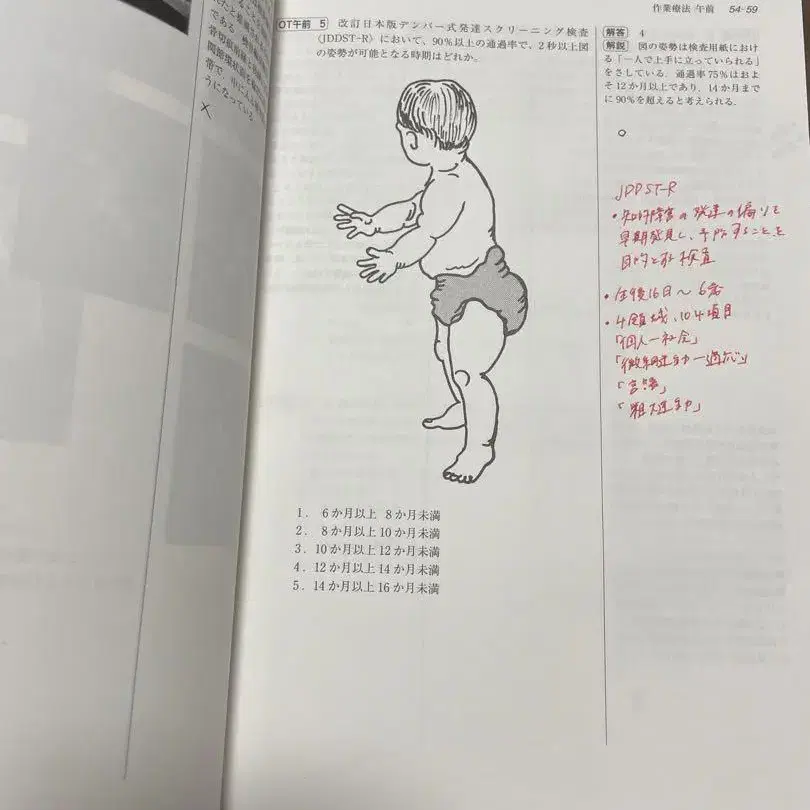 作業療法 午前 54-59
OT午前 5 改訂日本版デンバー式発達スクリーニング検査
(JDDST-R)において、90%以上の通過率で、2秒以上図
の姿勢が可能となる時期はどれか.
1. 6か月以上 8か月未満
2. 8か月以上10か月未満
3. 10か月以上12か月未満
4. 12か月以上14か月未満
5. 14か月以上16か月未満
解答 4
解説 図の姿勢は検査用紙におけ
る「一人で上手に立っていられる」
をさしている. 通過率75%はおよ
そ12か月以上であり, 14か月まで
に90%を超えると考えられる.
JDDST-R
・知的障害の発達の偏りを
早期発見し、予防することを
目的とする検査
・生後16日〜6歳
・4領域、104項目
「個人-社会」
「微細運動-適応」
「言語」
「粗大運動」
である
うになっている